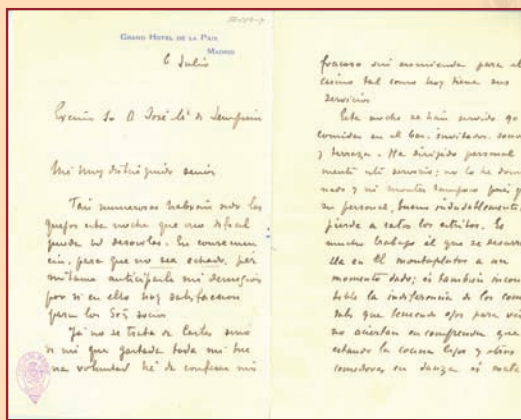 GRAND HOTEL DE LA PAIX
MADRID
6 Julio
Excmo Sr D José Mª de
Mi muy distinguido señor
Tan numerosas habrán sido las
quejas esta noche que creo dificil
pueda Vd desoirlas. En consecuen
cia, para que no sea echado, per
mitame anticiparle mi demisión
por si en ello hay satisfaccion
para los Sres socios
Ya no se trata de Carlos sino
de mi que gastada toda mi bue
na voluntad he de confesar mi
fracaso sin enmienda para el
casino tal como hoy tiene sus
servicios
Esta noche se han servido 90
comidas en el bar, invitados, socios
y terraza. He dirigido personal
mente el servicio; no lo he domi
nado y mi monter tampoco pues
su personal, bueno indudablemente,
pierde a ratos los estribos. Es
mucho trabajo el que se desarro
lla en el montaplatos a un
momento dado; es tambien incon
table la indiferencia de los comen
sales que teniendo ojos para ver
no aciertan en comprender que
estando la cocina lejos y otros
comedores en danza es